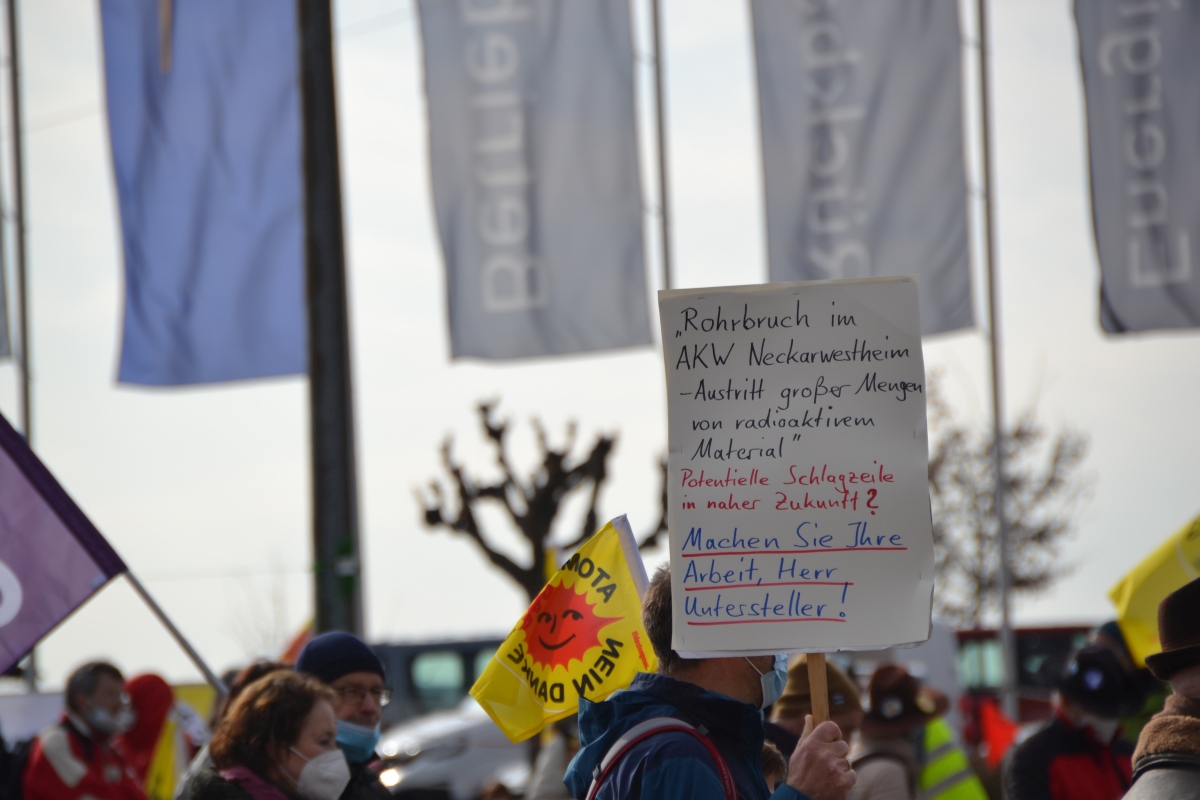 „Rohrbruch im
AKW Neckarwestheim
- Austritt großer Mengen
von radioaktivem
Material"
Potentielle Schlagzeile
in naher Zukunft?
Machen Sie Ihre
Arbeit, Herr
Untersteller!
NEIN DANKE